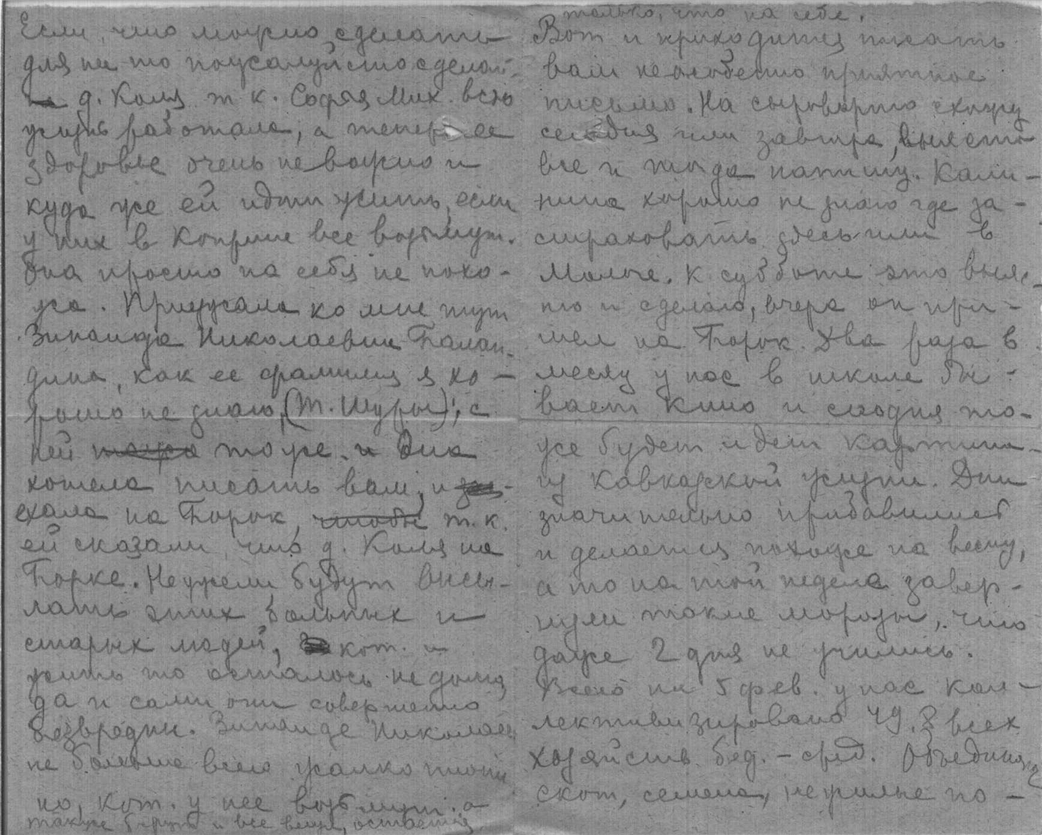 Если, что можно сделать
для ни то пожалуйста сделай.
д. Коля т к. Софья Мих. всю
жизнь работала, а теперь ее
здоровье очень неважно и
куда же ей идти жить, если
у них в Коприне все возьмут.
Она просто на себя не похо-
жа. Приезжала ко мне тут
Зинаида Николаевна Балан-
дина, как ее фамилия я хо-
рошо не знаю, (т. Шуры); с
ней тоже. и Она
хотела писать вам, и
ехала на Борок, чтобы т.к.
ей сказали, что д. Коля на
Борке. Неужели будут высы-
лать этих больных и
старых людей, кот. и
жить то осталось недолго
да и сами они совершенно
безвредны. Зинаиде Николаев
не больше всего жалко пиани
но, кот. у нее возьмут. а
также и все вещи, остается
только, что на себе.
Вот и приходится писать
вам не особенно приятное
письмо. На сыроварню схожу
сегодня или завтра, выясню
все и тогда напишу. Кали-
нина хорошо не знаю где за-
страховать здесь или в
Мологе. К субботе это выяс-
ню и сделаю, вчера он при-
шел на Борок. Два раза в
месяц у нас в школе бы-
вает кино и сегодня то-
же будет идет картина
из Кавказской жизни. Дни
значительно прибавились
и делается похоже на весну,
а то на той неделе завер-
нули такие морозы, что
даже 2 дня не учились.
Всего на 5 фев. у нас кол-
лективизировано 49,8 всех
хозяйств бед. - сред. Объединяют
скот, семена, жилые по-